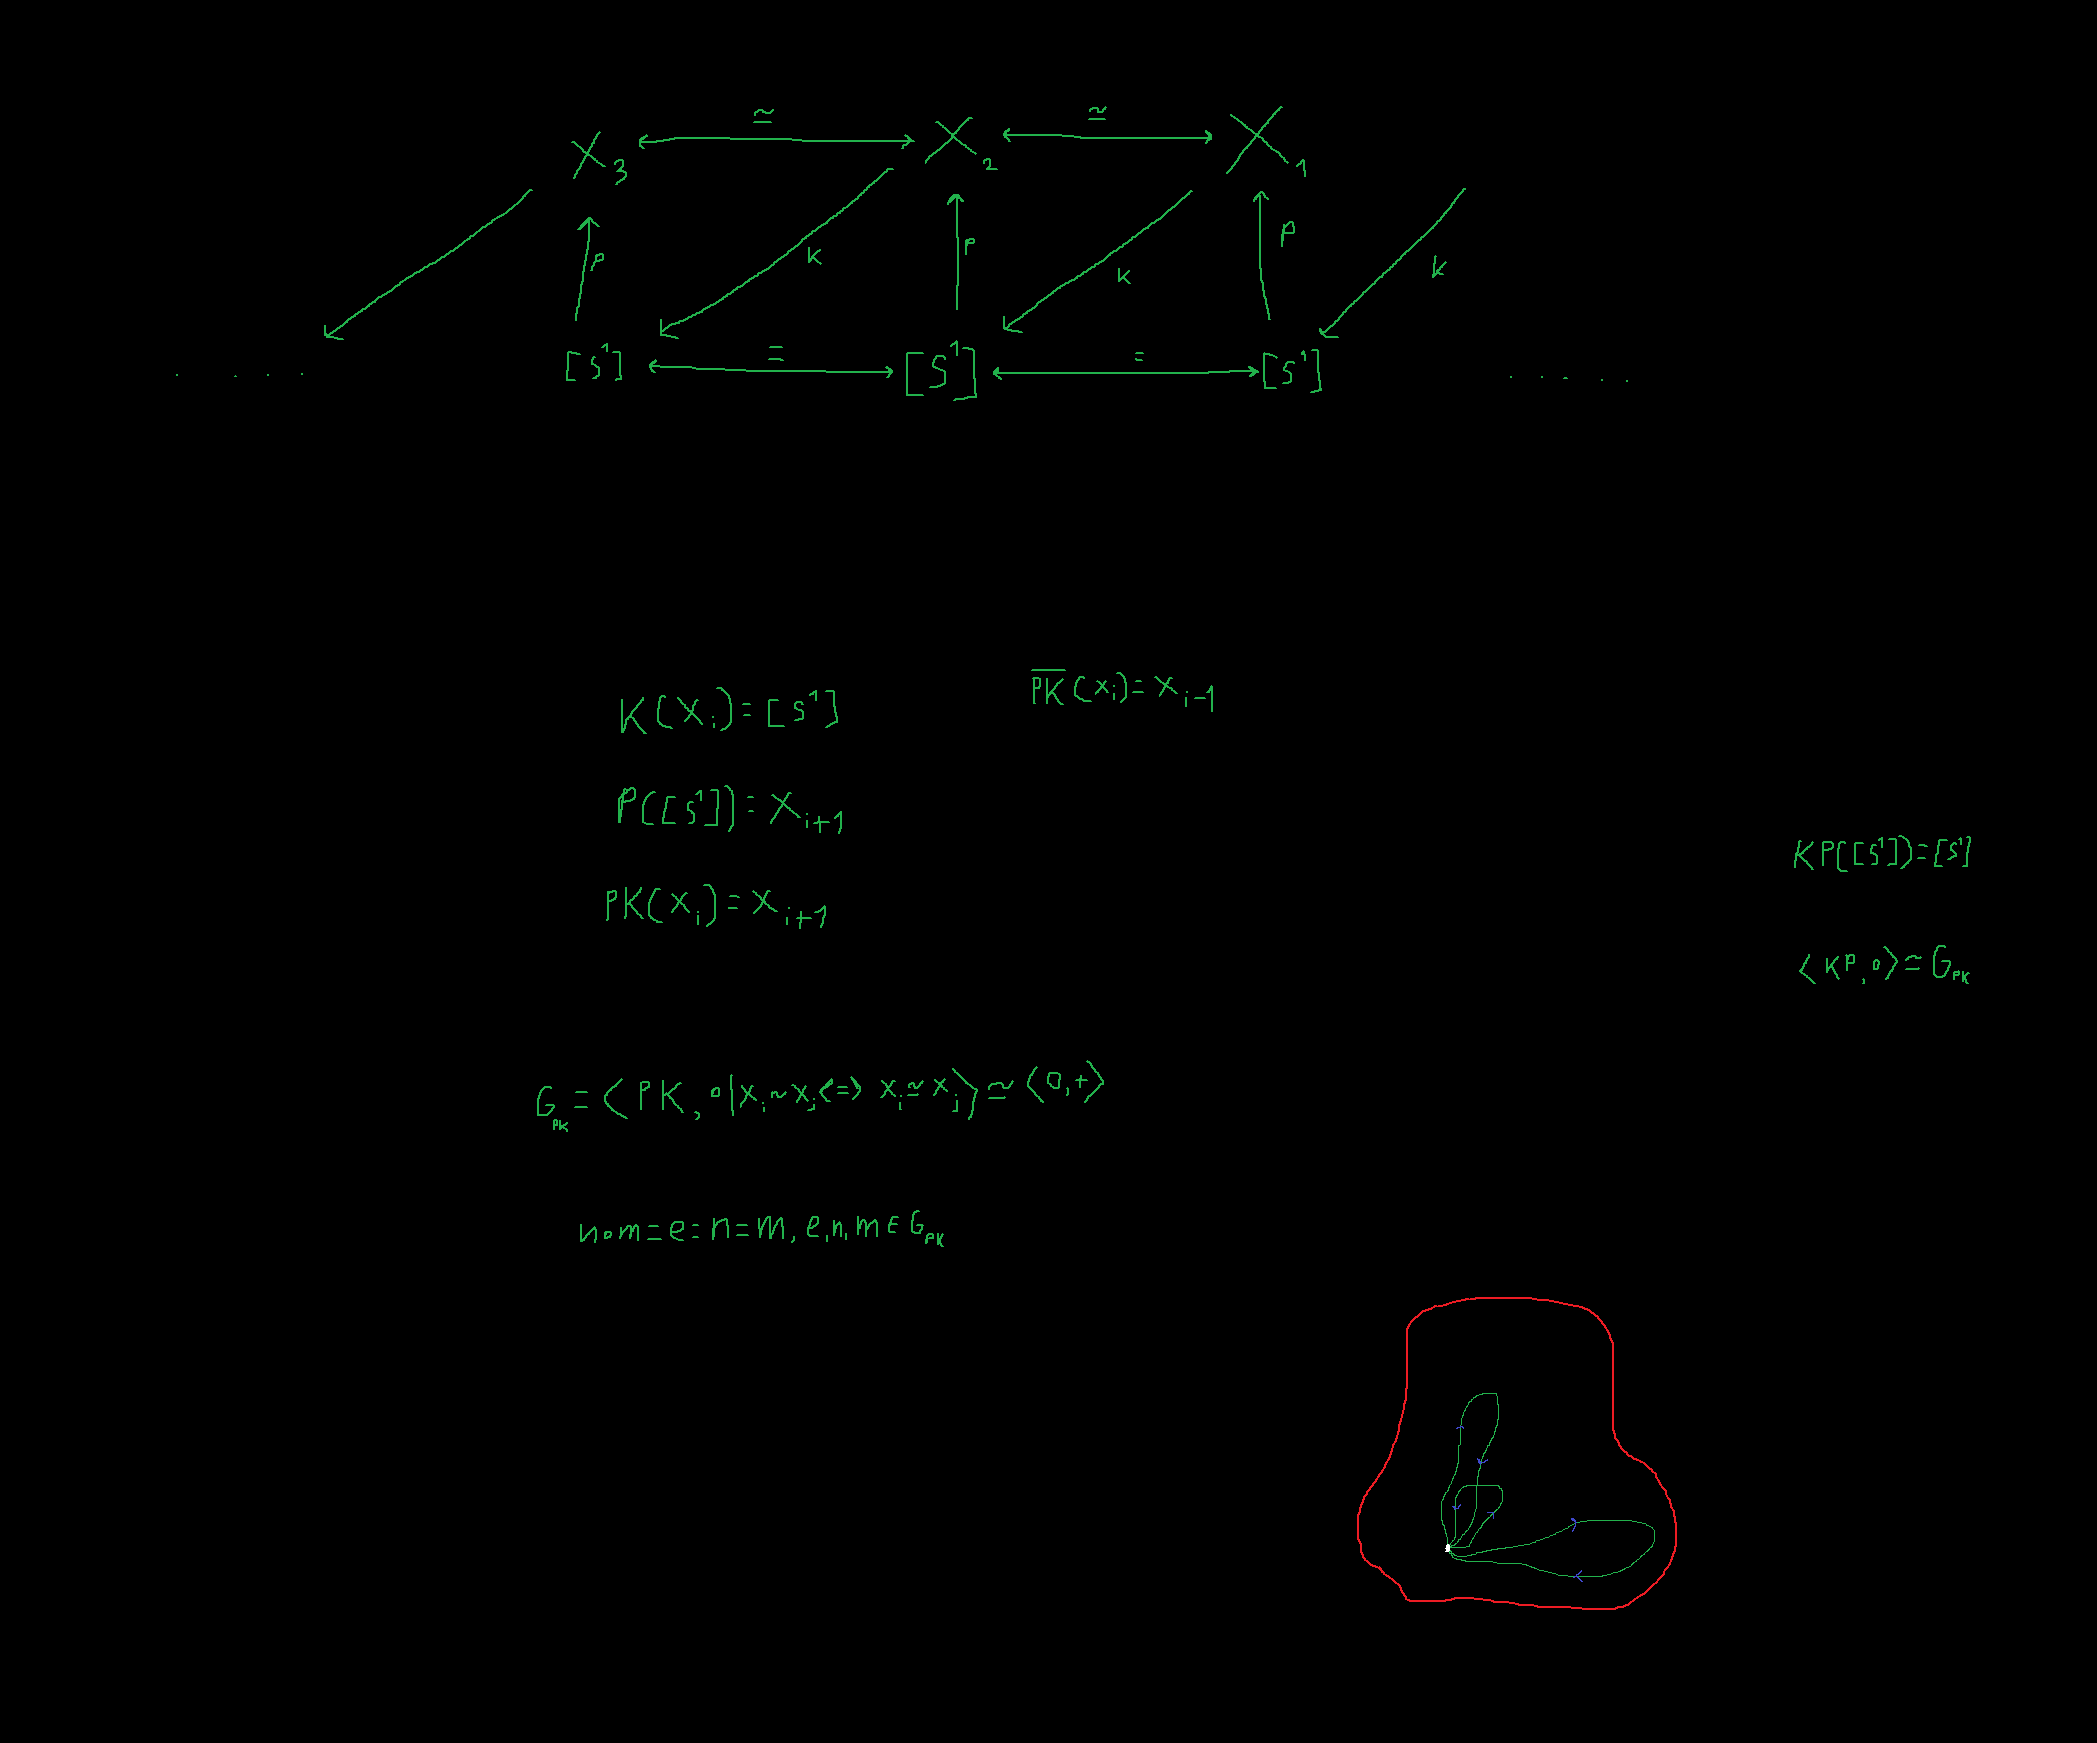 ≃ ≃
X₃ X₂ X₁
P K P K P K
[S¹] = [S¹] = [S¹]
. . . . . . . . .
K(Xᵢ)=[S¹]
P̅K̅(xᵢ)=xᵢ₋₁
P([S¹])=Xᵢ₊₁
PK(xᵢ)=xᵢ₊₁
KP([S¹])=[S¹]
⟨KP,∘⟩≃G_PK
G_PK=⟨PK,∘|xᵢ~xⱼ<=>xᵢ≃xⱼ⟩≃⟨0,+⟩
n∘m=e=n=m, e,n,m∈G_PK